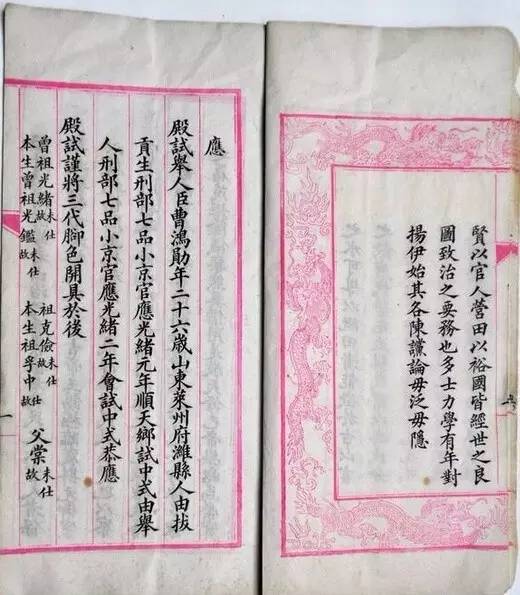 賢以官人營田以裕國皆經世之良
國致治之要務也多士力學有年對
揚伊始其各陳讜論毋泛毋隱
應
殿試舉人臣曹鴻勛年二十六歲山東萊州府濰縣人由拔
貢生刑部七品小京官應光緒元年順天鄉試中式由舉
人刑部七品小京官應光緒二年會試中式恭應
殿試謹將三代腳色開具於後
曾祖光緒未仕故 祖克儉未仕故 父棠未仕故
本生曾祖光鑑未仕故 本生祖孚中仕故